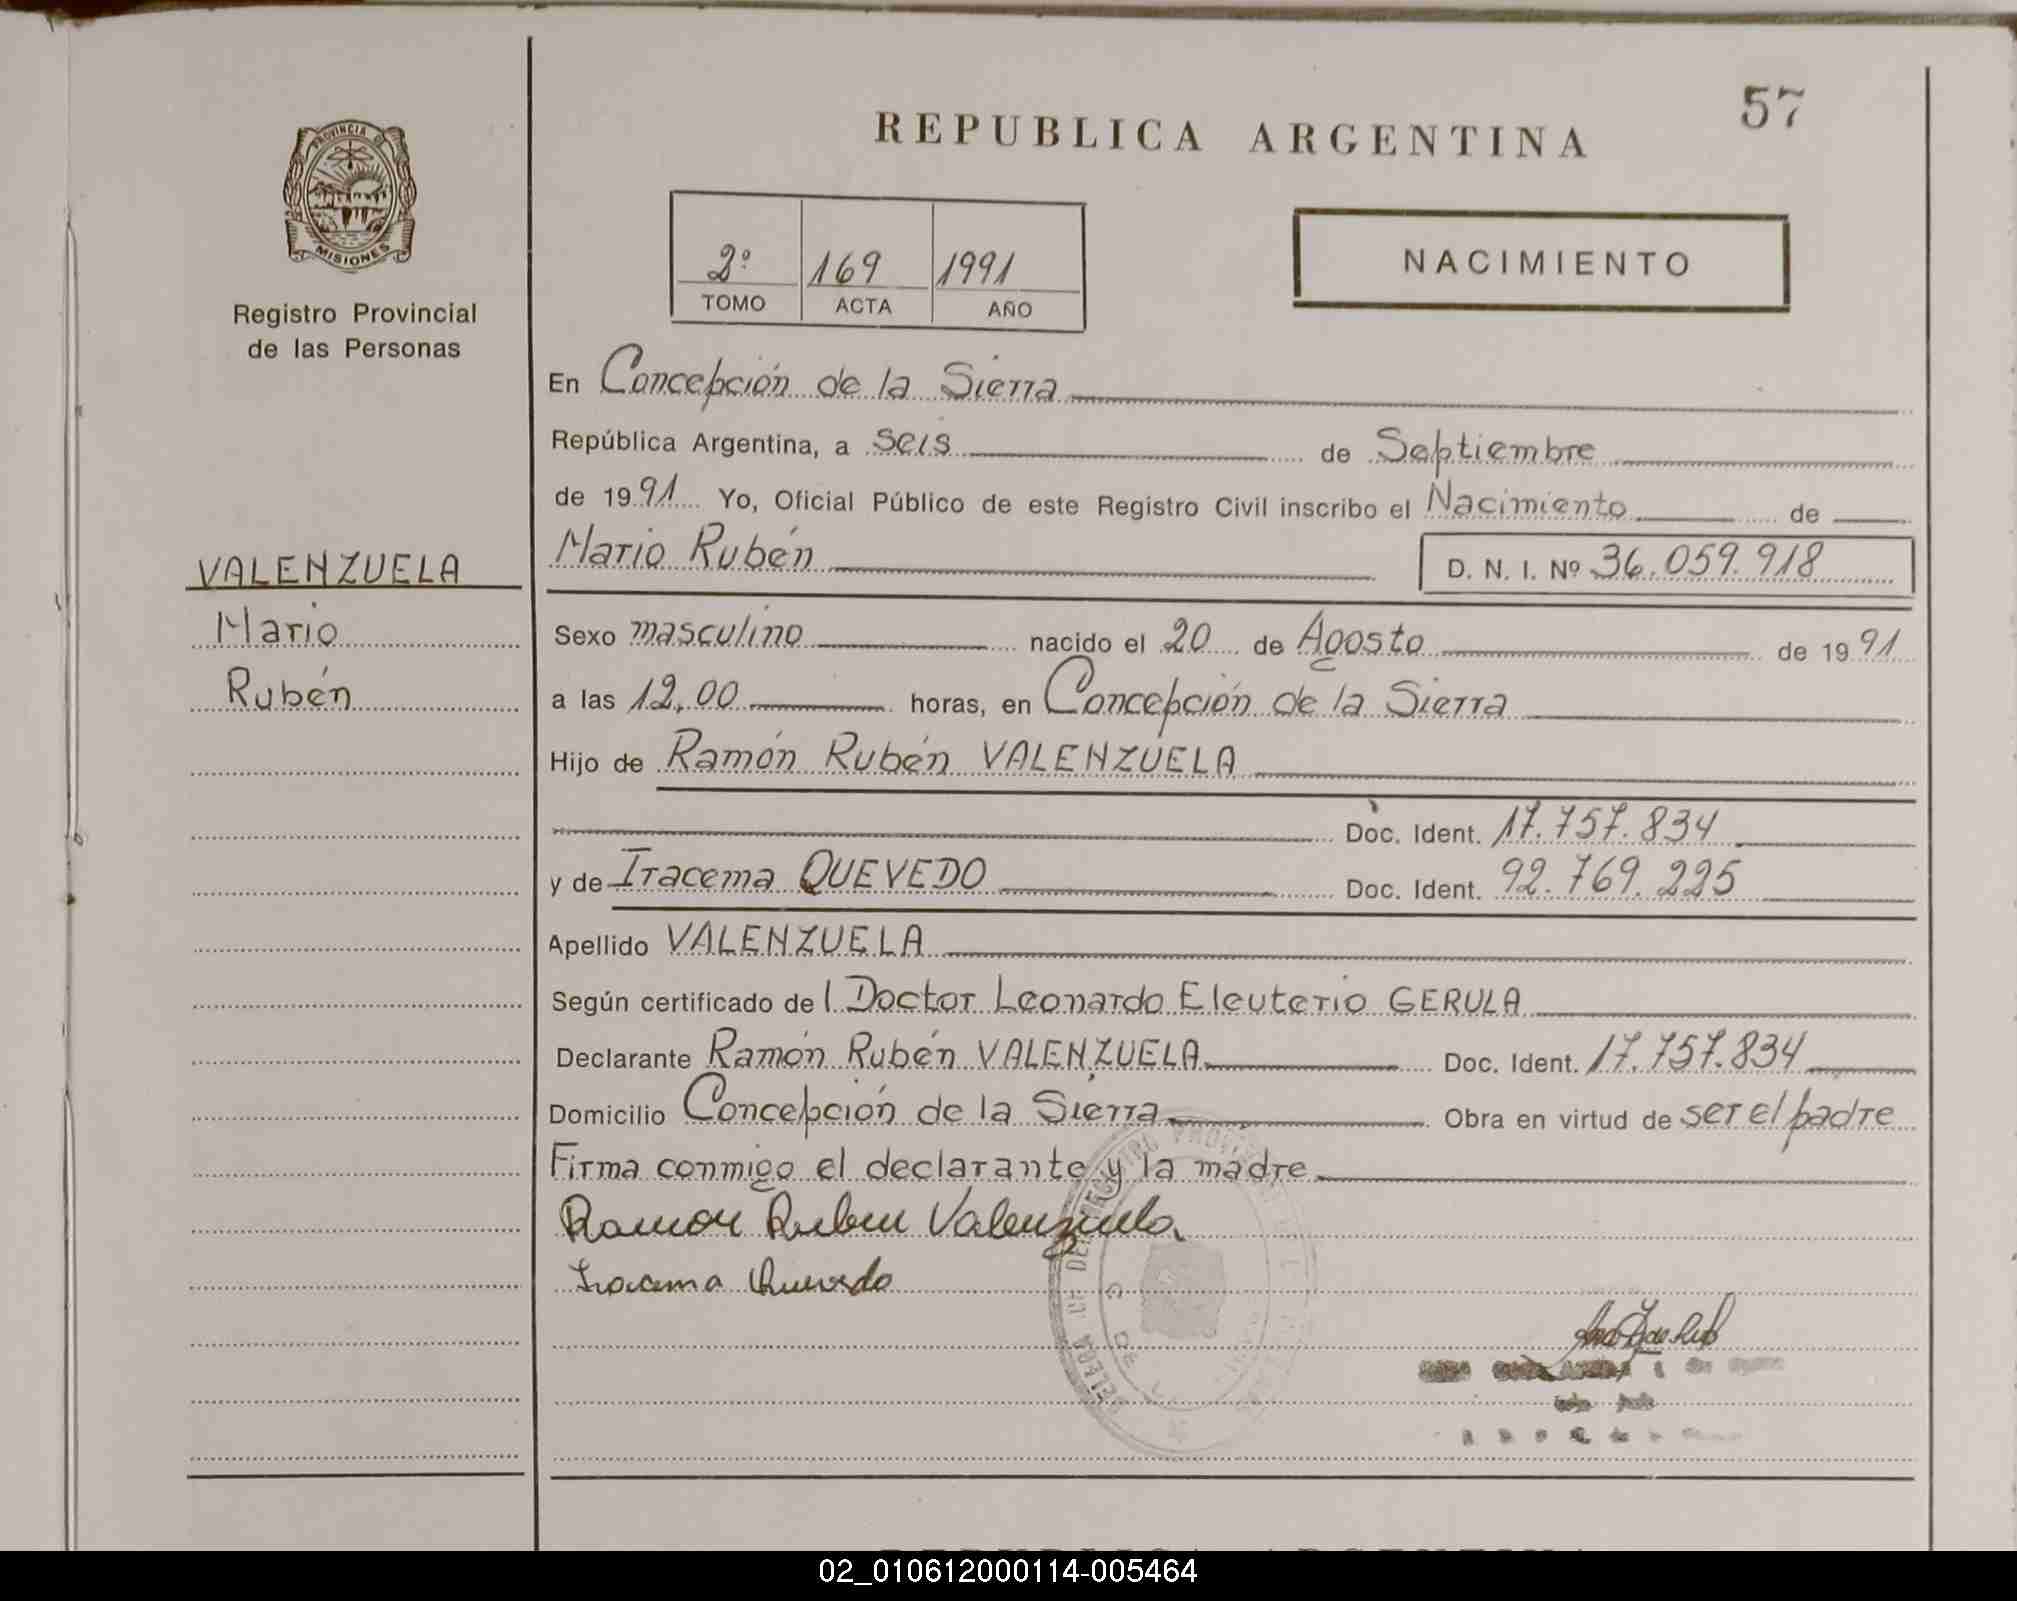 57
REPUBLICA ARGENTINA
PROVINCIA DE
MISIONES
Registro Provincial
de las Personas
2º 169 1991
TOMO ACTA AÑO
NACIMIENTO
En Concepción de la Sierra
República Argentina, a seis de Septiembre
de 1991 Yo, Oficial Público de este Registro Civil inscribo el Nacimiento de
Mario Rubén D. N. I. Nº 36.059.918
VALENZUELA
Mario
Rubén
Sexo masculino nacido el 20 de Agosto de 1991
a las 12,00 horas, en Concepción de la Sierra
Hijo de Ramón Rubén VALENZUELA
Doc. Ident. 17.757.834
y de Iracema QUEVEDO Doc. Ident. 92.769.225
Apellido VALENZUELA
Según certificado del Doctor Leonardo Eleuterio GERULA
Declarante Ramón Rubén VALENZUELA Doc. Ident. 17.757.834
Domicilio Concepción de la Sierra Obra en virtud de ser el padre
Firma conmigo el declarante y la madre
Ramon Ruben Valenzuela
Iracema Quevedo
02_010612000114-005464